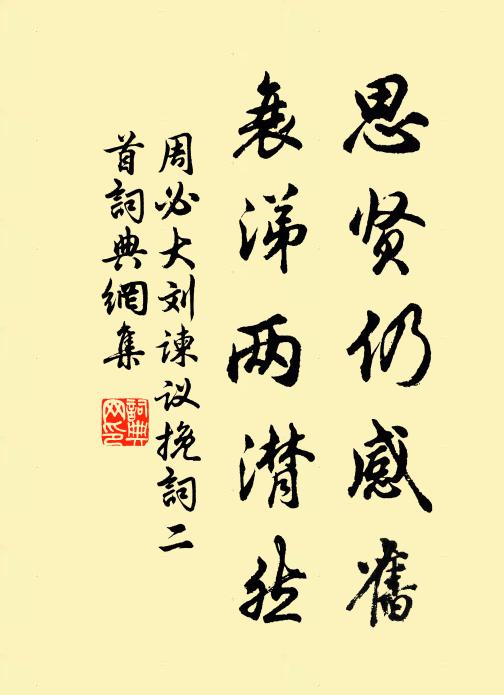 思贤仍感舊
衰涕两潸然
周必大刘谏议挽詞二
首詞典網集
詞典
网印